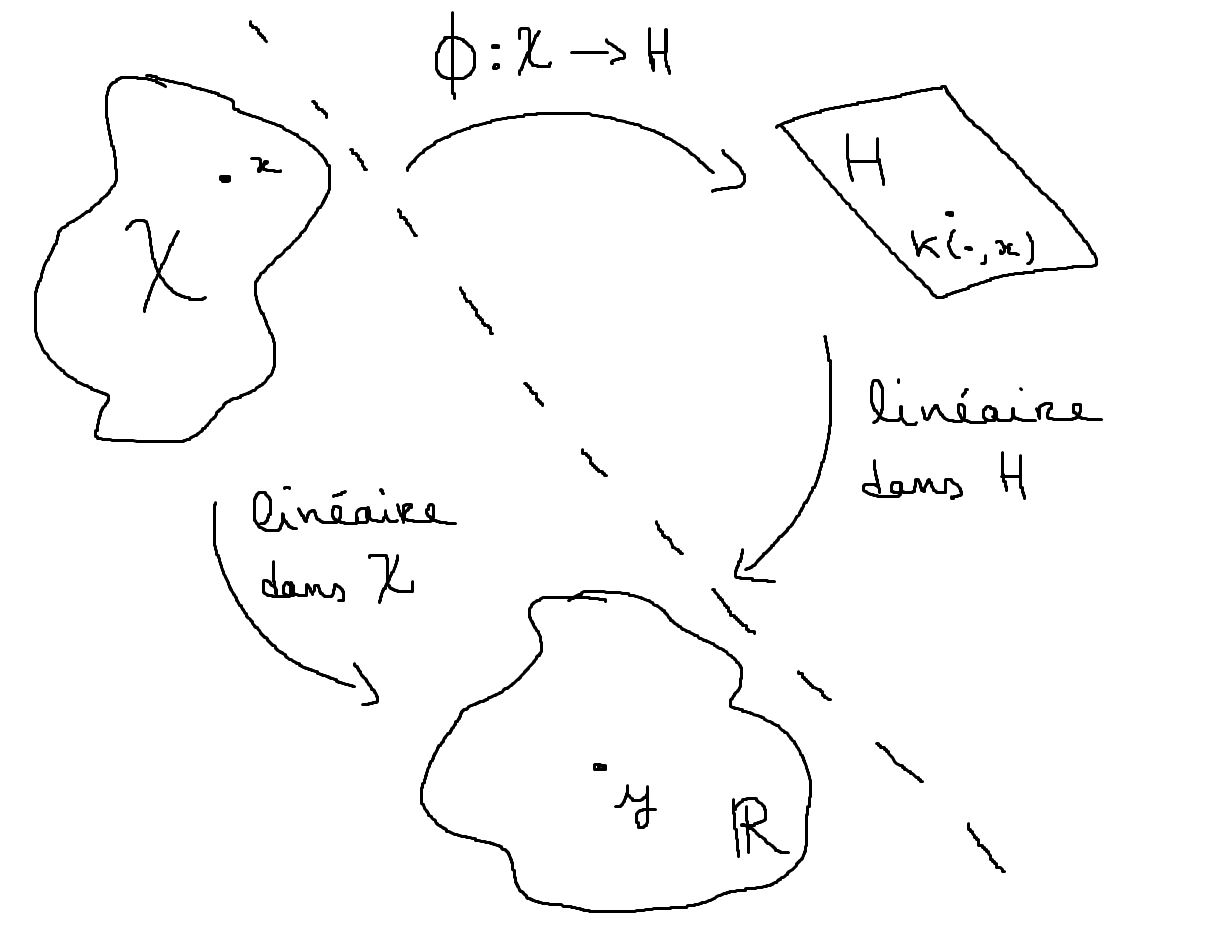 ϕ : 𝒳 → H
x
𝒳
H
K(·, x)
linéaire
dans H
linéaire
dans 𝒳
y
ℝ